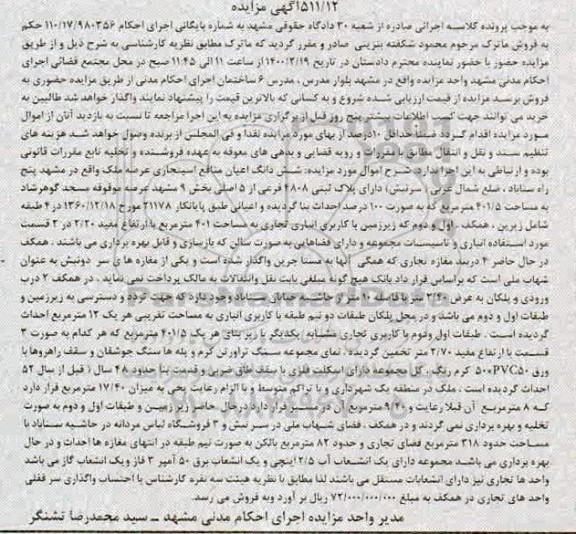 ۵۱۱/۱۲آگهی مزایده
به موجب پرونده کلاسه اجرائی صادره از شعبه ۳۰ دادگاه حقوقی مشهد به شماره بایگانی اجرای احکام ۱۱۰/۱۷/۹۸۰۳۵۶ حکم
به فروش ماترک مرحوم محمود شکفته بتزینی صادر و مقرر گردید که ماترک مطابق نظریه کارشناسی به شرح ذیل و از طریق
مزایده حضور با حضور نماینده محترم دادستان در تاریخ ۱۴۰۰/۲/۱۹ از ساعت ۱۱ الی ۱۱:۴۵ صبح در محل مجتمع قضائی اجرای
احکام مدنی مشهد واحد مزایده واقع در مشهد بلوار مدرس ، مدرس ۶ ساختمان اجرای احکام مدنی از طریق مزایده حضوری به
فروش برسد مزایده از قیمت ارزیابی شده شروع و به کسانی که بالاترین قیمت را پیشنهاد نمایند واگذار خواهد شد طالبین به
خرید می توانند جهت کسب اطلاعات بیشتر پنج روز قبل از برگزاری مزایده به این اجرا مراجعه تا نسبت به بازدید آنان از اموال
مورد مزایده اقدام گردد ضمنا حداقل ۱۰درصد از بهای مورد مزایده نقدا و فی المجلس از برنده وصول خواهد شد هزینه های
تنظیم سند و نقل و انتقال مطابق با مقررات و رویه قضایی و بدهی های معوقه به عهده فروشنده و تخلیه تابع مقررات قانونی
بوده و ارتباطی به این اجرا ندارد: شرح اموال مورد مزایده: شش دانگ اعیان منافع استیجاری عرصه ملک واقع در مشهد پنج
راه سناباد ، ضلع شمال غربی ( سرنبش) دارای پلاک ثبتی ۴۸۰۸ فرعی از ۵ اصلی بخش ۹ مشهد عرصه موقوفه مسجد گوهرشاد
به مساحت ۴۰۱/۵ مترمربع که به صورت ۱۰۰ درصد احداث بنا گردیده و اعیانی طبق پایانکار ۲۱۱۷۸ مورخ ۱۳۶۰/۱۲/۱۸ در ۴ طبقه
شامل زیرین ، همکف ، اول و دوم که زیرزمین با کاربری انباری تجاری به مساحت ۴۰۱ مترمربع با ارتفاع مفید ۲/۲۰ در ۲ قسمت
مورد استفاده انباری و تاسیسات مجموعه و دارای فضاهایی به صورت سالن که بازسازی و قابل بهره برداری می باشند ، همکف
در حال حاضر ۴ دربند مغازه تجاری که همگی آنها به مستاجرین واگذار شده است و یکی از مغازه های سر دونبش به عنوان
شهاب ملی است که براساس قرار داد بانک هیچ گونه مبلغی بابت نقل وانتقالات به مالک پرداخت نمی نماید ، در همکف ۲ درب
ورودی و پلکان به عرض متر با فاصله ۱۰ متر از حاشیه خیابان سناباد وجود دارد که جهت تردد و دسترسی به زیرزمین و
طبقات اول و دوم می باشد و در محل پلکان طبقات دو نیم طبقه با کاربری انباری به مساحت تقریبی هر یک ۱۲ مترمربع احداث
گردیده است . طبقات اول ودوم با کاربری تجاری مشابه یکدیگر با زیر بنای هر یک ۴۰۱/۵ مترمربع که هر کدام به صورت ۳
قسمت با ارتفاع مفید ۲/۷۰ متر تخمین گردیده ، نمای مجموعه سنگ تراورتن کرم و پله ها سنگ جوشقان و سقف راهروها با
ورق ۵۰PVC×۵۰ کرم رنگ ، کل مجموعه دارای اسکلت فلزی با سقف طاق ضربی و قدمت بنا حدود ۴۸ سال ( قبل از سال ۵۲
احداث گردیده است ، ملک در منطقه یک شهرداری و با تراکم متوسط و با الزام رعایت پخی به میزان ۱۷/۴۰ مترمربع قرار دارد
که ۸ مترمربع آن قبلا رعایت و مترمربع آن در مسیر قرار دارد در حال حاضر زیرزمین و طبقات اول و دوم به صورت
تخلیه و بهره برداری نمی گردند و در همکف ، فضای شهاب ملی در سر نبش و ۳ فروشگاه لباس مردانه در حاشیه سناباد با
مساحت حدود ۳۱۸ مترمربع فضای تجاری و حدود ۸۲ مترمربع بالکن به صورت نیم طبقه در انتهای مغازه ها احداث و در حال
بهره برداری می باشد مجموعه دارای یک انشعاب آب ۲/۵ اینچی و یک انشعاب برق ۵۰ آمپر ۳ فاز ویک انشعاب گاز می باشد
واحد ها تجاری نیز دارای انشعابات مستقل می باشند لذا مطابق با نظریه هیئت سه نفره کارشناس با احتساب واگذاری سر قفلی
واحد های تجاری در همکف به مبلغ ۷۲/۰۰۰/۰۰۰/۰۰۰ ریال بر آورد وبه فروش می رسد.
مدیر واحد مزایده اجرای احکام مدنی مشهد ـ سید محمدرضا تشنگر